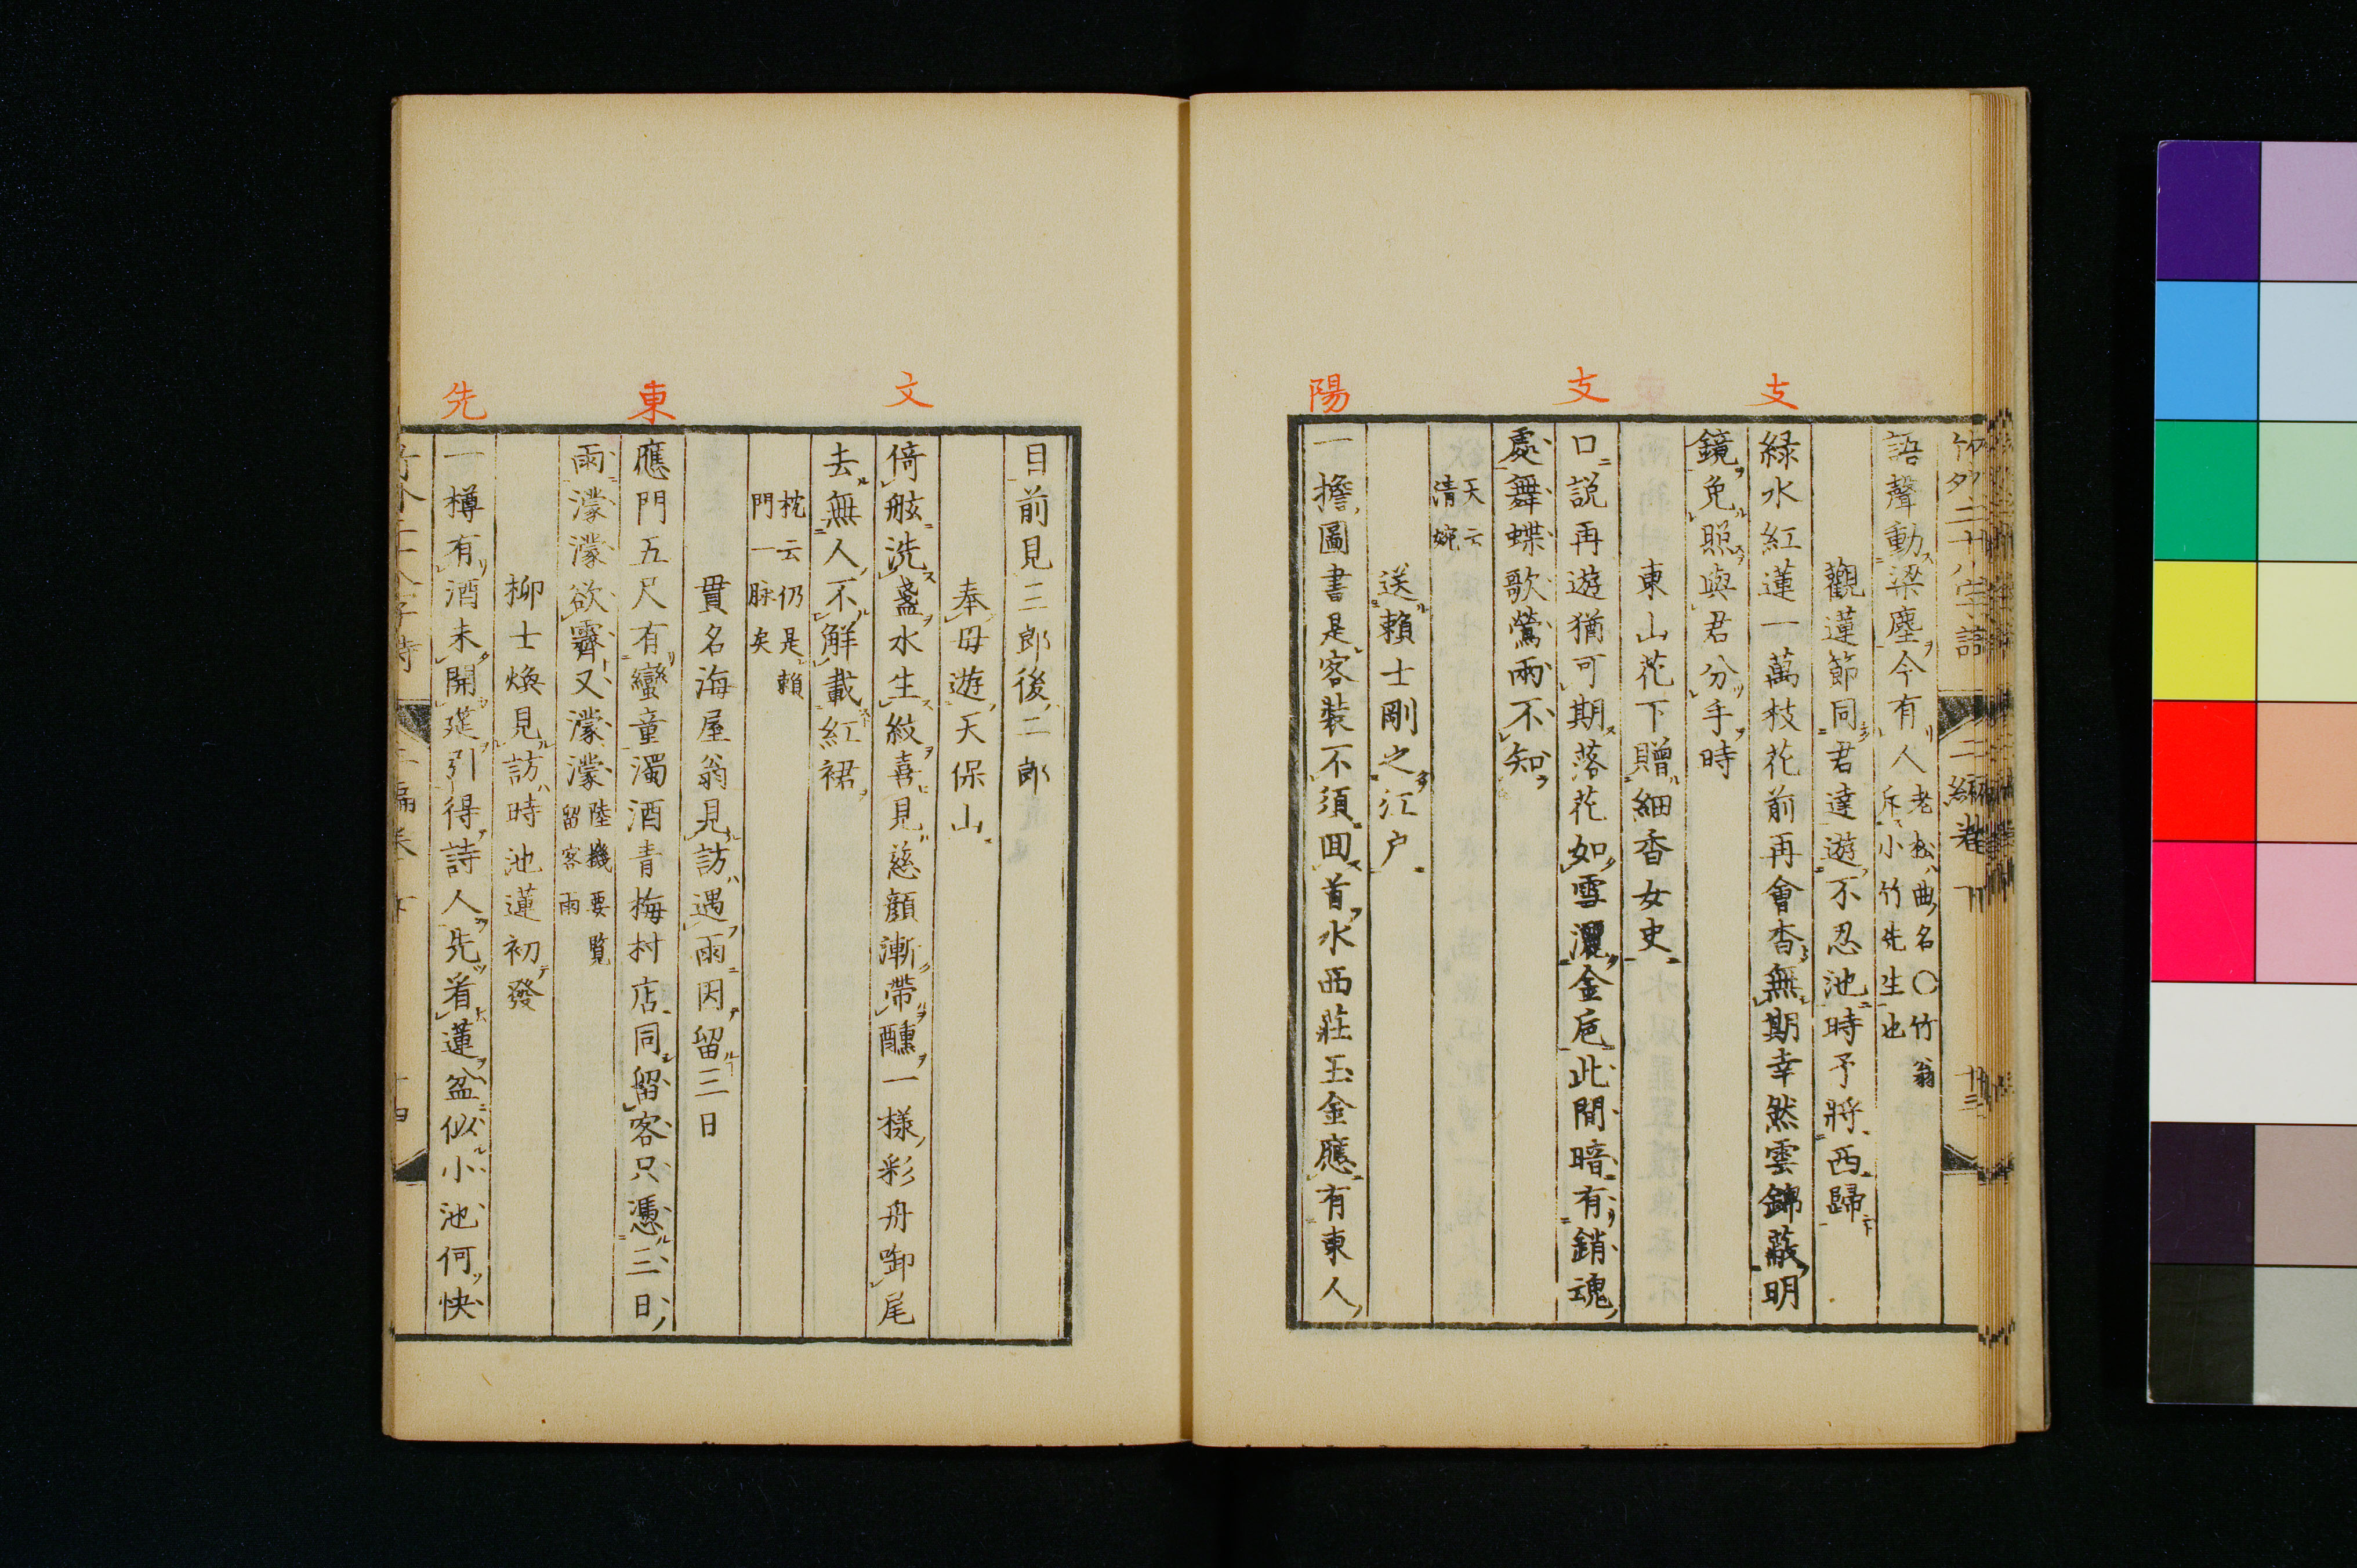 語聲動梁塵今有人老松曲名〇竹翁
斥小竹先生也
觀蓮節同君達遊不忍池時予將西歸
支
緑水紅蓮一萬枝花前再會杳無期幸然雲錦蔽明
鏡免照與君分手時
東山花下贈細香女史
支
口說再遊猶可期落花如雪灑金巵此間暗有銷魂
處舞蝶歌鶯兩不知
天云
清婉
送賴士剛之江户
陽
一擔圖書是客裝不須囬首水西莊玉金應有東人
目前見三郎後二郎
奉母遊天保山
文
倚舷洗盞水生紋喜見慈顔漸帶醺一樣彩舟啣尾
去無人不解載紅裙
枕云仍是賴
門一脉矣
貫名海屋翁見訪遇雨因留三日
東
應門五尺有蠻童濁酒青梅村店同留客只憑三日
雨濛濛欲霽又濛濛陸機要覽
留客雨
柳士煥見訪時池蓮初發
先
一樽有酒未開筵引得詩人先看蓮盆似小池何快